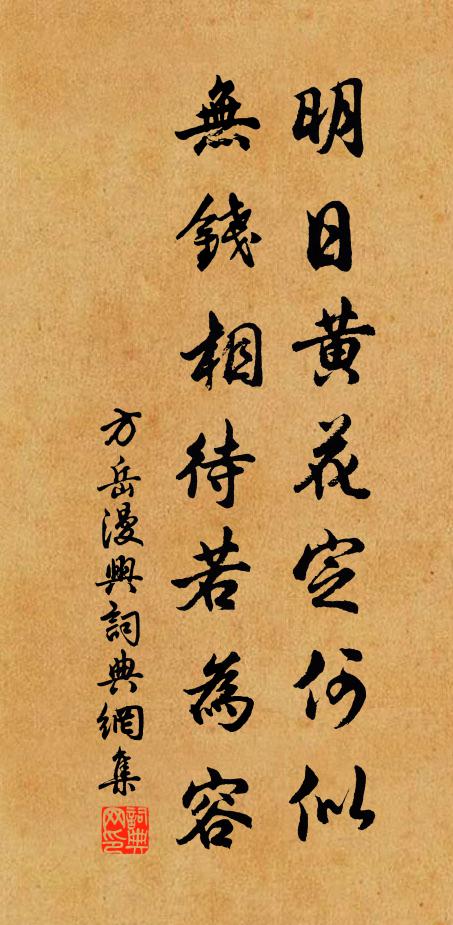 明日黄花定何似
無錢相待若為容
方岳漫興詞典網集
詞典网印